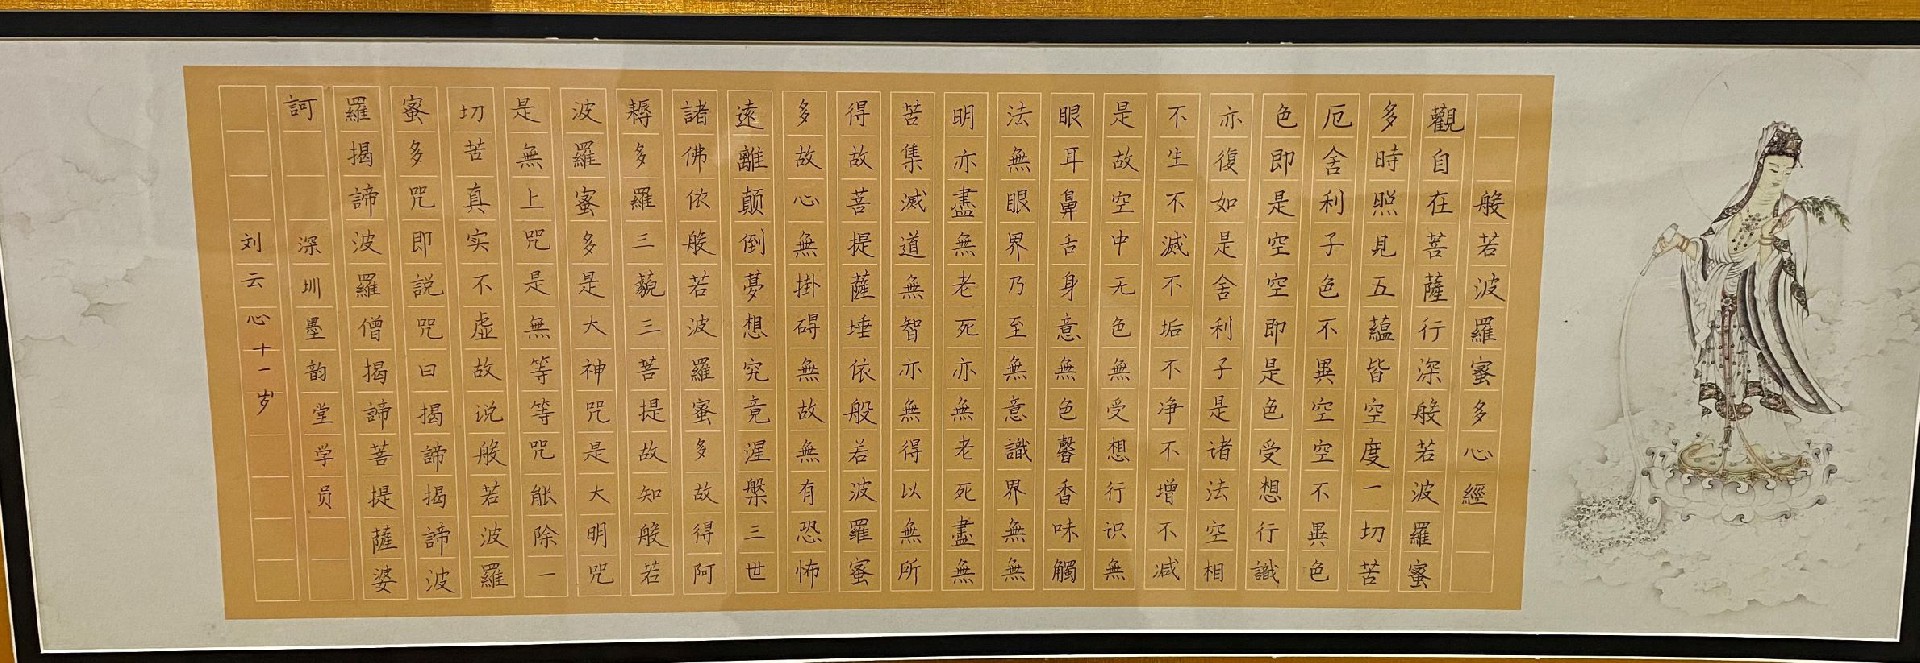 般若波羅蜜多心經
觀自在菩薩行深般若波羅蜜
多時照見五蘊皆空度一切苦
厄舍利子色不異空空不異色
色即是空空即是色受想行識
亦復如是舍利子是诸法空相
不生不滅不垢不净不增不减
是故空中无色無受想行识無
眼耳鼻舌身意無色聲香味觸
法無眼界乃至無意識界無無
明亦盡無老死亦無老死盡無
苦集滅道無智亦無得以無所
得故菩提薩埵依般若波羅蜜
多故心無掛碍無故無有恐怖
遠離顛倒夢想究竟涅槃三世
諸佛依般若波羅蜜多故得阿
耨多羅三藐三菩提故知般若
波羅蜜多是大神咒是大明咒
是無上咒是無等等咒能除一
切苦真实不虛故说般若波羅
蜜多咒即説咒曰揭諦揭諦波
羅揭諦波羅僧揭諦菩提薩婆
訶 深圳墨韵堂学员
刘云心十一岁